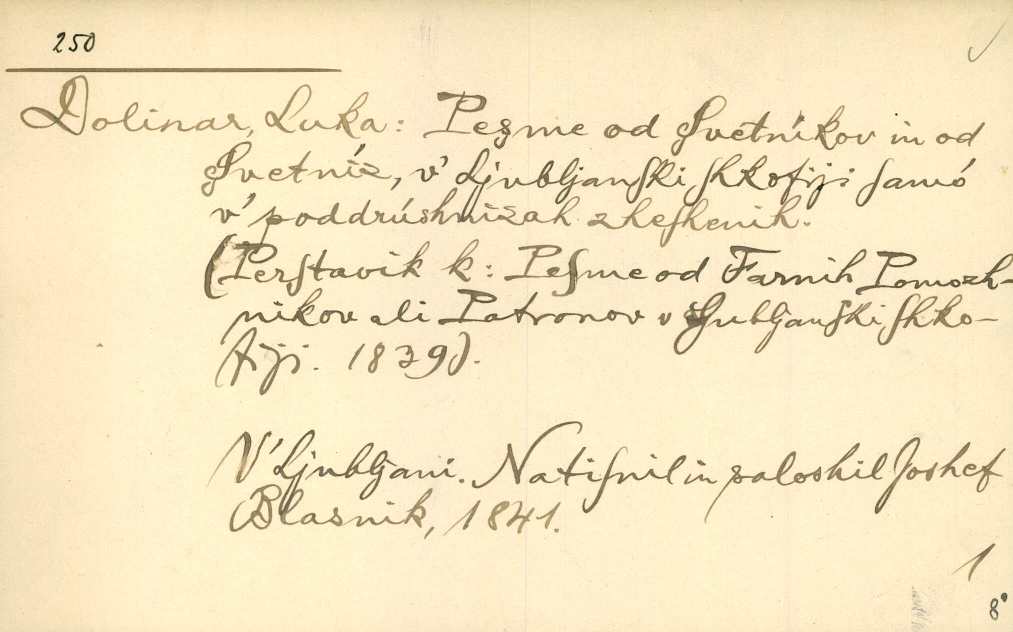 250
Dolinar, Luka: Pesme od Svetnikov in od
Svetníz, v' Ljubljanſki ſhkofiji ſamó
v' poddrúshnizah zheſhenih.
(Perſtavik k: Peſme od Farnih Pomozh-
nikov ali Patronov v Ljubljanſki ſhko-
fiji. 1839).
V' Ljubljani. Natiſnil in saloshil Joshef
Blasnik, 1841.
1
8°